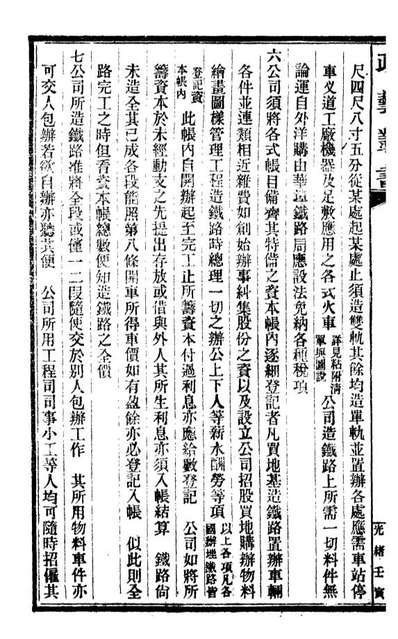 政藝叢書
尺四尺八寸五分從某處起某處止須造雙軌其餘均造單軌並置辦各處應需車站停
車义道工廠機器及足敷應用之各式火車詳見粘附清單與圖說公司造鐵路上所需一切料件無
論運自外洋購由華境鐵路局應設法免納各種稅項
六公司須將各式帳目備齊其特備之資本帳內逐細登記者凡買地基造鐵路置辦車輛
各件並連類相近雜費如創始辦事糾集股份之資以及設立公司招股買地購辦物料
繪畫圖樣管理工程造鐵路時總理一切之辦公上下人等薪水酬勞等項以上各項凡各國辦理鐵路皆
登記資本帳內此帳內自開辦起至完工止所籌資本付過利息亦應給數登記公司如將所
籌資本於未經動支之先提出存放或借與外人其所生利息亦須入帳結算鐵路尙
未造全其已成各段能照第八條開車所得車價如有盈餘亦必登記入帳似此則全
路完工之時但看資本帳總數便知造鐵路之全價
七公司所造鐵路准將全段或僅一二段隨便交於別人包辦工作其所用物料車件亦
可交人包辦若欲自辦亦聽其便公司所用工程司司事小工等人均可隨時招僱其
光緒壬寅